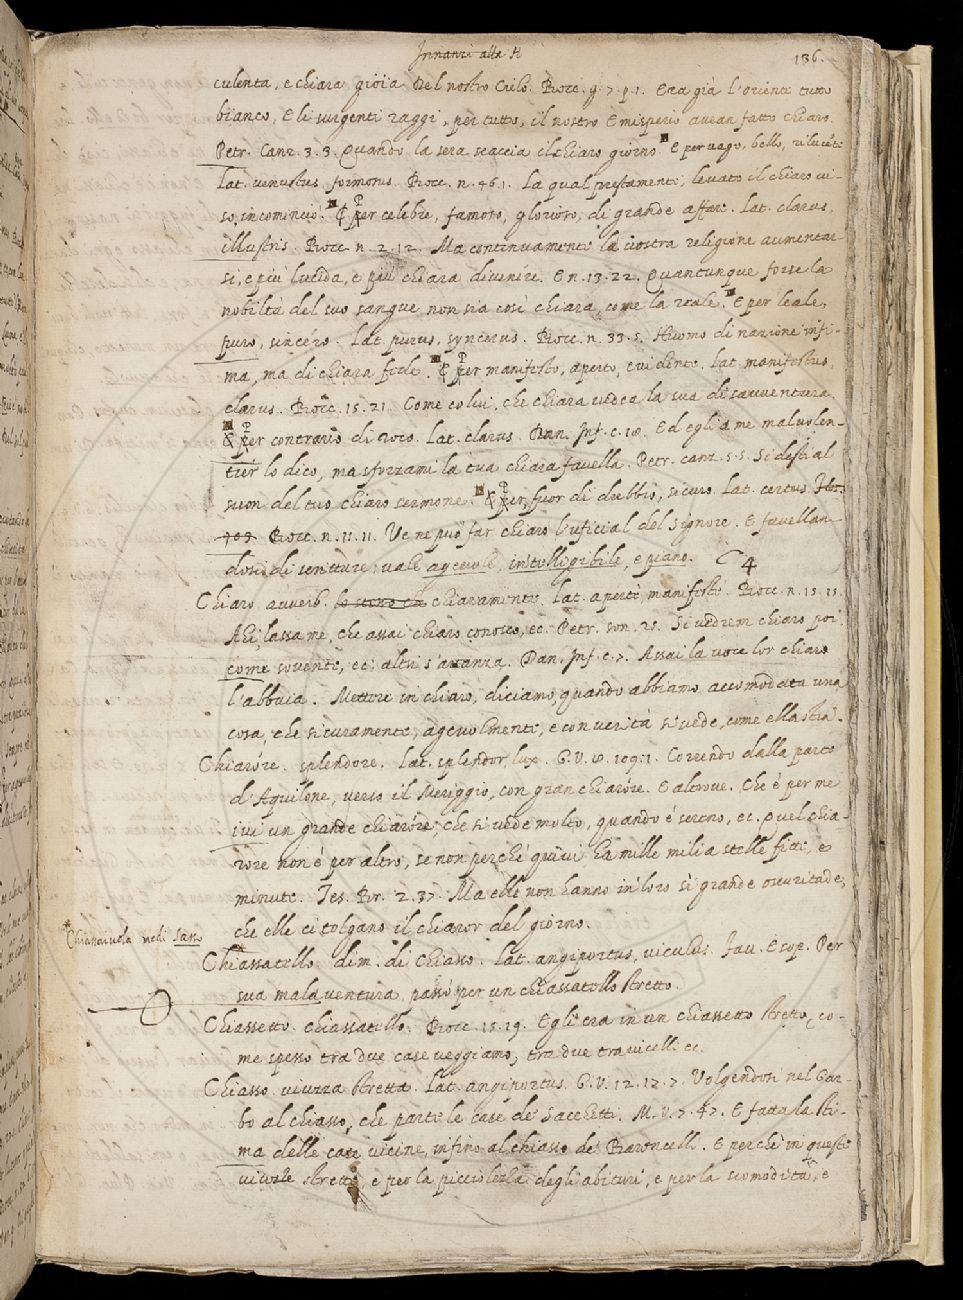 Innanzi alla H
136.
culenta, e chiara gioia Del nostro Cielo. Bocc. g. 7. p. 1. Era già l'oriente tutto
bianco, E li surgenti raggi, per tutto, il nostro Emisperio avean fatto chiaro.
Petr. Canz. 3. 3. Quando la sera scaccia il chiaro giorno. E per vago, bello, rilucēte
Lat. venustus formosus. Bocc. n. 46. 1. La qual prestamente, levato il chiaro vi-
so, incominciò. E per celebre, famoso, glorioso, di grande affare. Lat. clarus,
illustris. Bocc. n. 2. 12. Ma continuamente la vostra religione aumentar-
si, e più lucida, e più chiara divenire. E n. 13. 22. Quantunque forse la
nobiltà del suo sangue non sia così chiara, come la reale. E per leale,
puro, sincéro. Lat. purus, syncerus. Bocc. n. 33. 5. Huomo di nazione infi-
ma, ma di chiara fede. E per manifesto, aperto, evidente. Lat. manifestus,
clarus. Bocc. 15. 21. Come colui, che chiara vedea la sua disavventura
E per contrario di roco. Lat. clarus. Dan. Inf. c. 18. Ed egli a me malvolen-
tier lo dico, ma sforzami la tua chiara favella. Petr. canz. 5. 5. Si desti al
suon del tuo chiaro sermone. E per, fuor di dubbio, sicuro. Lat. certus.
Bocc. n. 11. 11. Ve ne può far chiaro l'uficial del Signore. E favellan-
dosi di scritture vale agevole, intelligibile, e piano. C 4
Chiaro avverb. lo stesso ch chiaramente. Lat. apertè manifestè. Bocc. n. 15. 15.
Ahi, lassa me, che assai chiaro conosco, ec. Petr. son. 25. Si vedrem chiaro poi
come sovente, ec. altri s'avanza. Dan. Inf. c. 7. Assai la voce lor chiaro
l'abbaia. Mettere in chiaro, diciamo, quando abbiamo accomodata una
cosa, che sicuramente, agevolmente, e con verità si vede, come ella stia.
Chiaróre. splendore. Lat. splendor, lux. G. V. 8. 109. 1. Correndo dalla parte
d'Aquilone, verso il Meriggio, con gran chiaróre. E altrove. Che è per me
ivi un grande chiaróre, che si vede molto, quando é sereno, ec. Quel chia-
rore non é per altro, se non perché quivi ha mille milia stelle fitte, e
minute. Tes. Br. 2. 37. Ma elle non hanno in loro sì grande oscuritade,
che elle ci tolgano il chiaror del giorno.
Chiassaiuola vedi Sasso
Chiassatello. dim. di Chiasso. Lat. angiportus, viculus. Fav. Esop. Per
sua mala ventura, passò per un chiassatello stretto.
Chiassetto. chiassatello. Bocc. 15. 19. Egli era in un chiassetto stretto, co-
me spesso tra due case veggiamo, tra due travicelli ec.
Chiasso. viuzza stretta. Lat. angiportus. G. V. 12. 17. 7. Volgendosi nel Gar-
bo al chiasso, che parte le case de' Sacchetti. M. V. 7. 47. E fatta la sti-
ma delle case vicine, infino al chiasso de' Baroncelli. E perchè in queste
vicorte strette, e per la picciolezza degli abituri, e per la scomodità, e